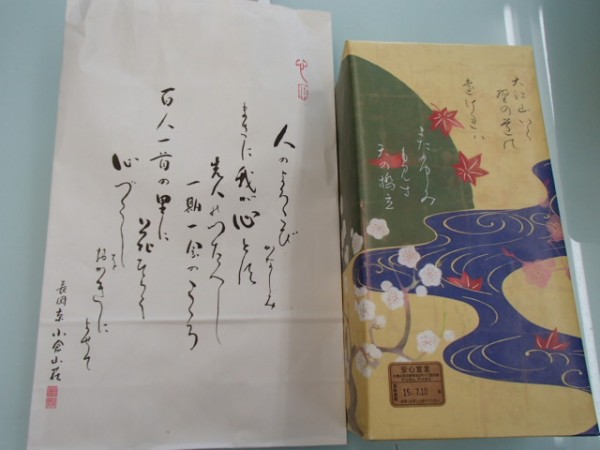 人のよろこび
かなしみ
まさに我が心と
先人のつたへし
一期一会のこころ
百人一首の里に
心づくし
を
おかきに
よせて
長岡京 小倉山荘
大江山いく
野の道の
遠けれハ
またふみ
もみす
天の橋立
安心宣言
15.-7.10